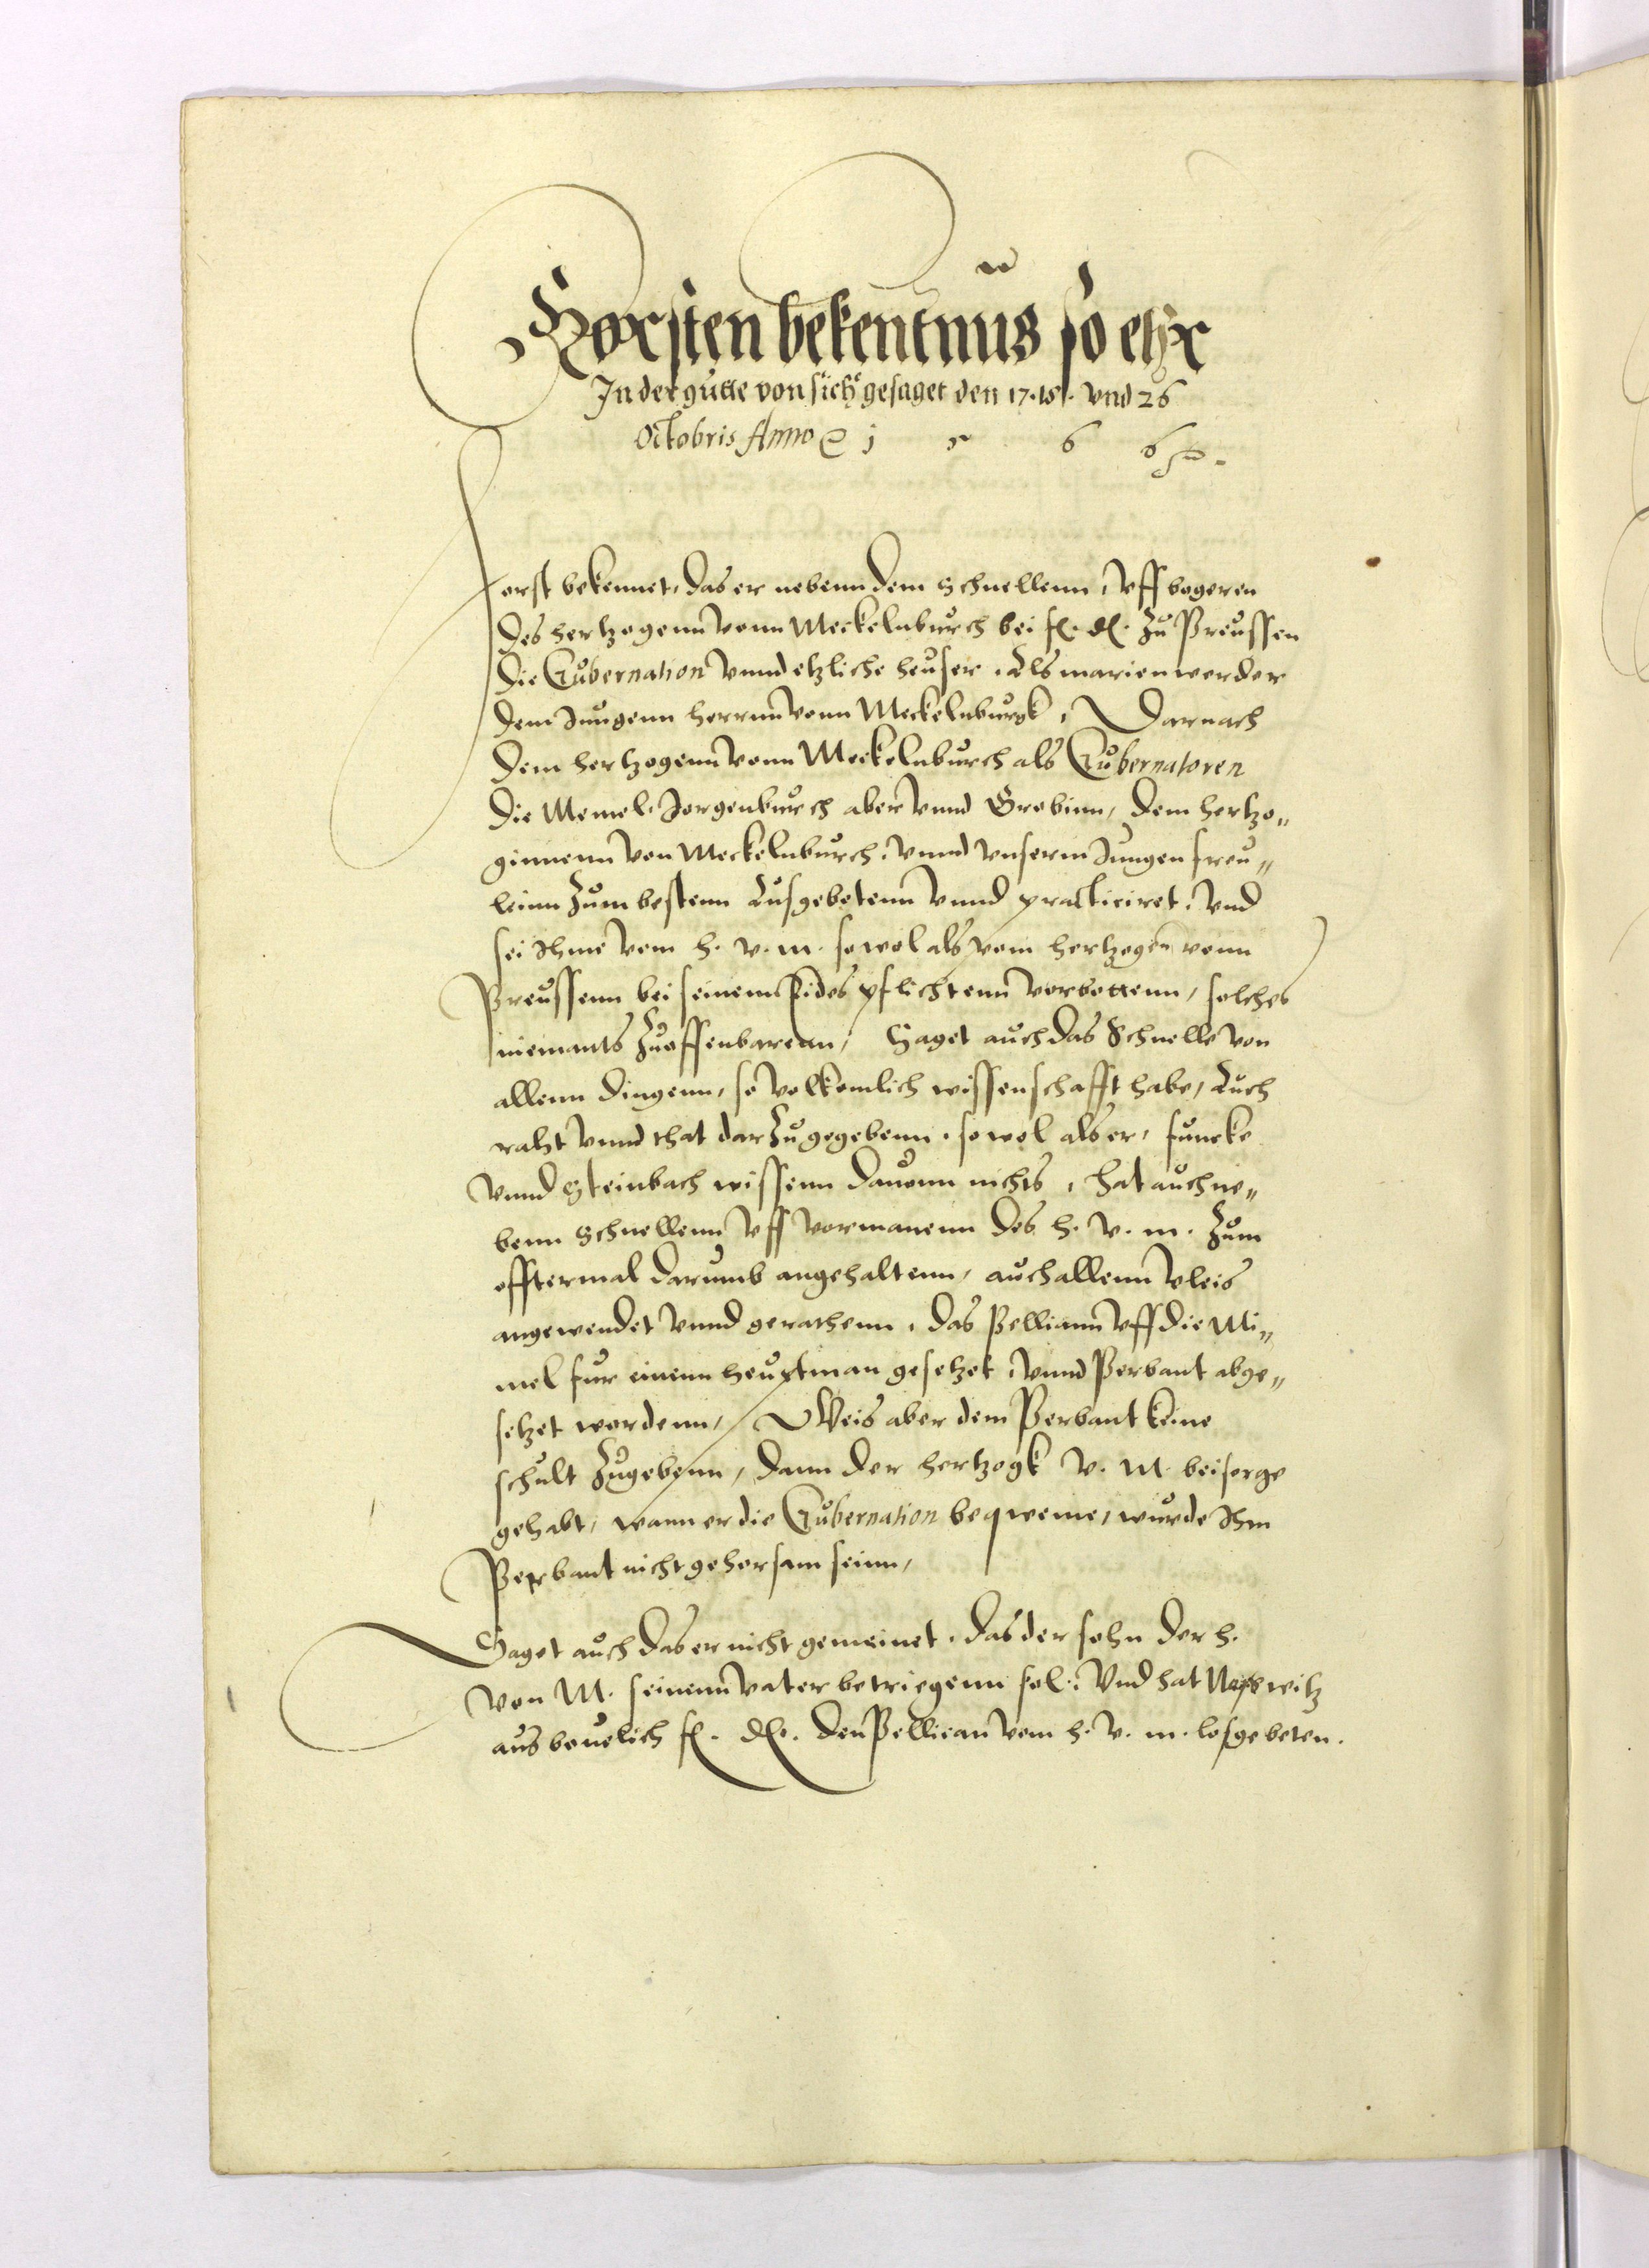 Horsten bekentnus so ehr
In der gutte von sich gesaget den 17. 18. vnd 26
Octobris Anno 1 5 6 6
Horst bekennet, das er nebenn dem Schnellenn, vff begeren
des hertzogenn vonn Meckelnburch bei f. d. zu Preussen
die Gubernation vnnd etzliche heuser, Als marienwerder
dem Jungenn herrnn vonn Meckelnburgk, Darnach
dem hertzogenn vonn Meckelnburch als Gubernatoren
die Memel. Jorgenburch aber vnnd Grobinn, dem hertzo„
ginnenn von Meckelnburch, vnnd vnserm Jungen freu„
leinn zum bestenn Ausgebetenn vnnd practiciret, Vnd
sei Ihme vom h. v. m. sowol als vom hertzogen vonn
Preussenn bei seinem Eides pflichtenn verbottenn, solches
niemants zuoffenbarenn, Saget auch das Schnelle von
allenn dingenn, so volkomlich wissenschafft habe, Auch
raht vnnd that darzu gegebenn, sowol als er, funcke
vnnd Steinbach wissenn dauonn nichts, Hat auch ne„
benn Schnellenn vff vormanenn des h. v. m. zum
offtermal darumb angehaltenn, auch allenn vleis
angewendet vnnd gerathenn, das Pelliann vff die Mi„
mel fur einenn heuptman gesetzet, vnnd Perbant abge„
setzet wordenn, Weis aber dem Perbant keine
schult zugebenn, dann der hertzogk v. M. beisorge
gehabt, wann er die Gubernation beqweme, wurde Ihm
Perbant nicht gehorsam seinn,
Saget auch das er nicht gemeinet, das der sohn der h.
von M. seinenn vater betriegenn sol. Vnd hat
aus beuelich f. d. den Pellican vom h. v. m. losgebeten.